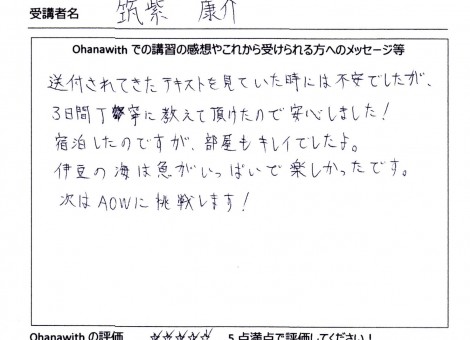 受講者名 筑紫 康介
Ohanawith での講習の感想やこれから受けられる方へのメッセージ等
送付されてきたテキストを見ていた時には不安でしたが、
3日間丁寧に教えて頂けたので安心しました!
宿泊したのですが、部屋もキレイでしたよ。
伊豆の海は魚がいっぱいで楽しかったです。
次はAOWに挑戦します!
Ohanawith の評価 ☆☆☆☆☆ 5点満点で評価してください!